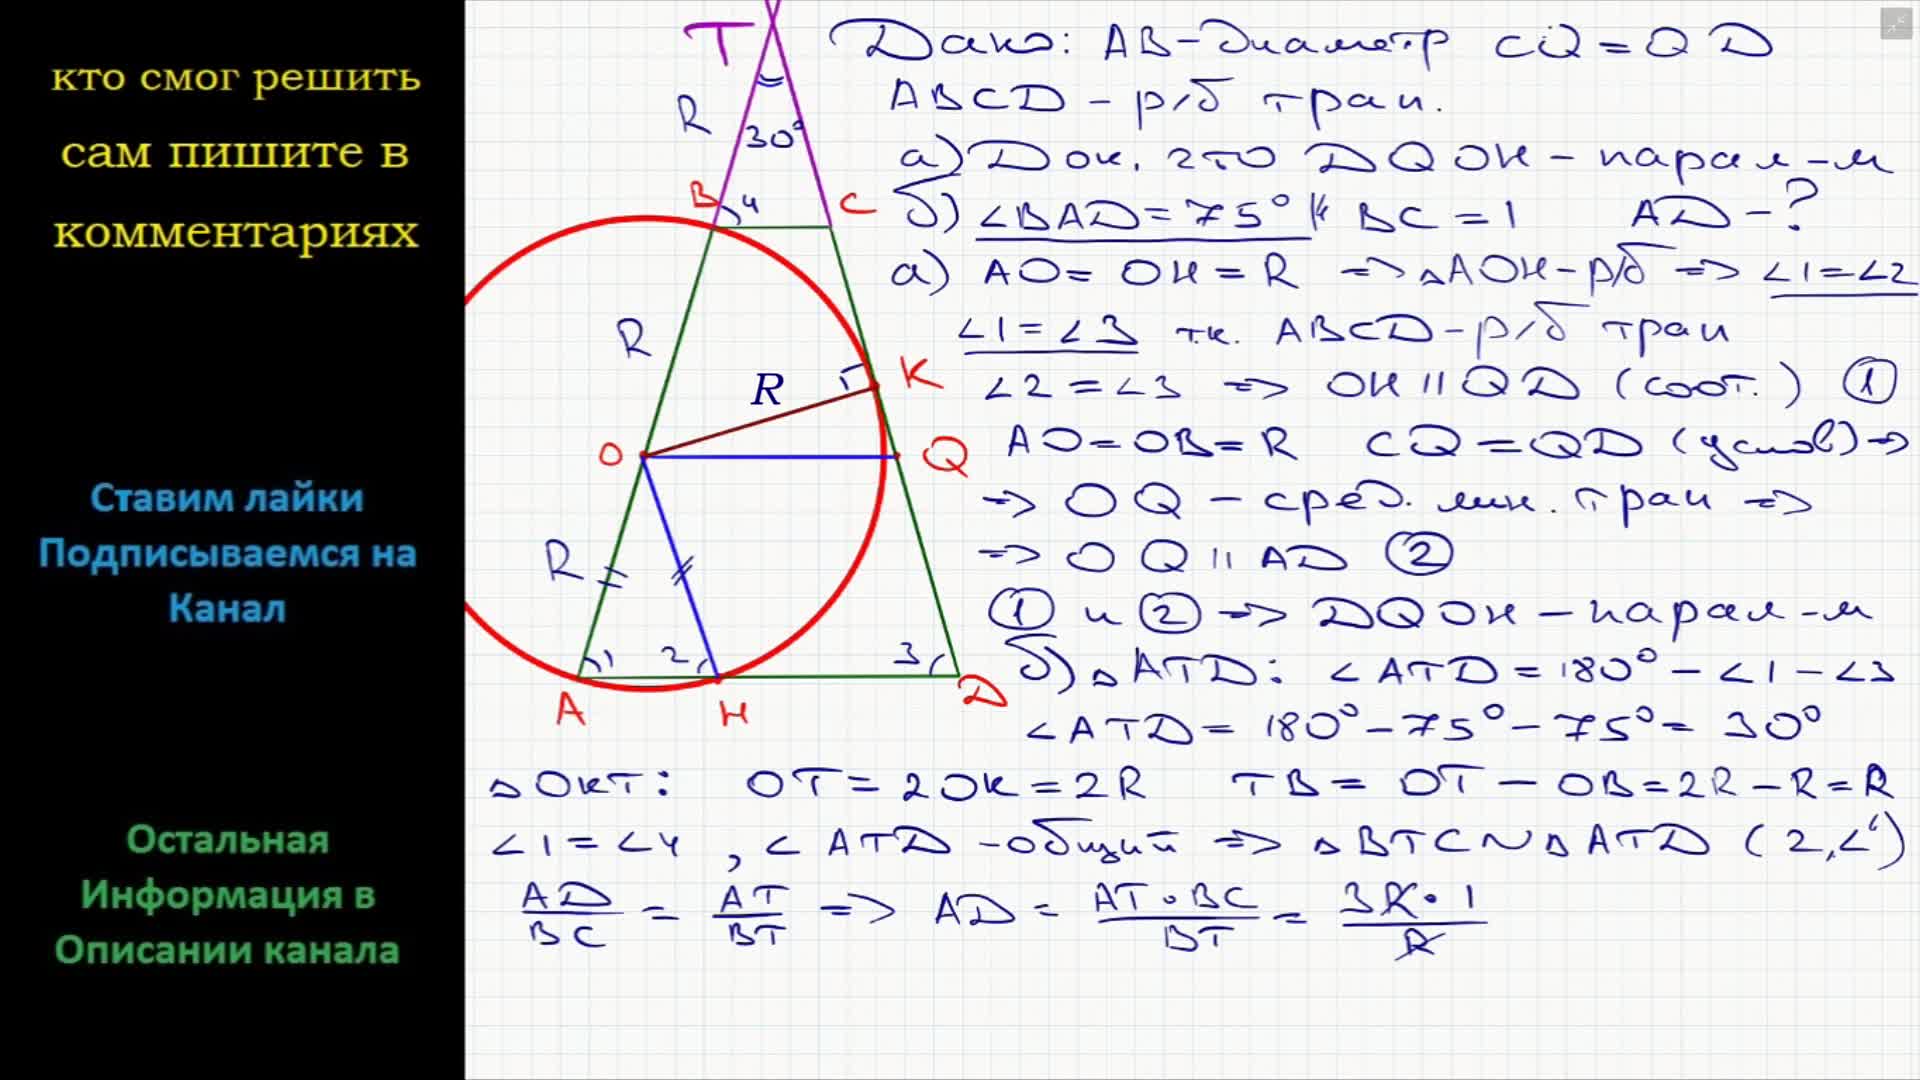 кто смог решить
сам пишите в
комментариях
Ставим лайки
Подписываемся на
Канал
Остальная
Информация в
Описании канала
T
R
30°
B
4
C
R
R
K
O
Q
R
1
2
3
A
H
D
Дано: AB-диаметр CQ = QD
ABCD - р/б трап.
а) Док. что DQOH - парал-м
б) ∠BAD = 75° и BC = 1 AD - ?
а) AO = OH = R => △AOH - р/б => ∠1 = ∠2
∠1 = ∠3 т.к. ABCD - р/б трап
∠2 = ∠3 => OH || QD (соот.) ①
AO = OB = R CQ = QD (услов) =>
=> OQ - сред. лин. трап =>
=> OQ || AD ②
① и ② => DQOH - парал-м
б) △ATD: ∠ATD = 180° - ∠1 - ∠3
∠ATD = 180° - 75° - 75° = 30°
△OKT: OT = 2OK = 2R TB = OT - OB = 2R - R = R
∠1 = ∠4, ∠ATD - общий => △BTC ~ △ATD (2,∠')
AD/BC = AT/BT => AD = AT·BC/BT = 3R·1/R